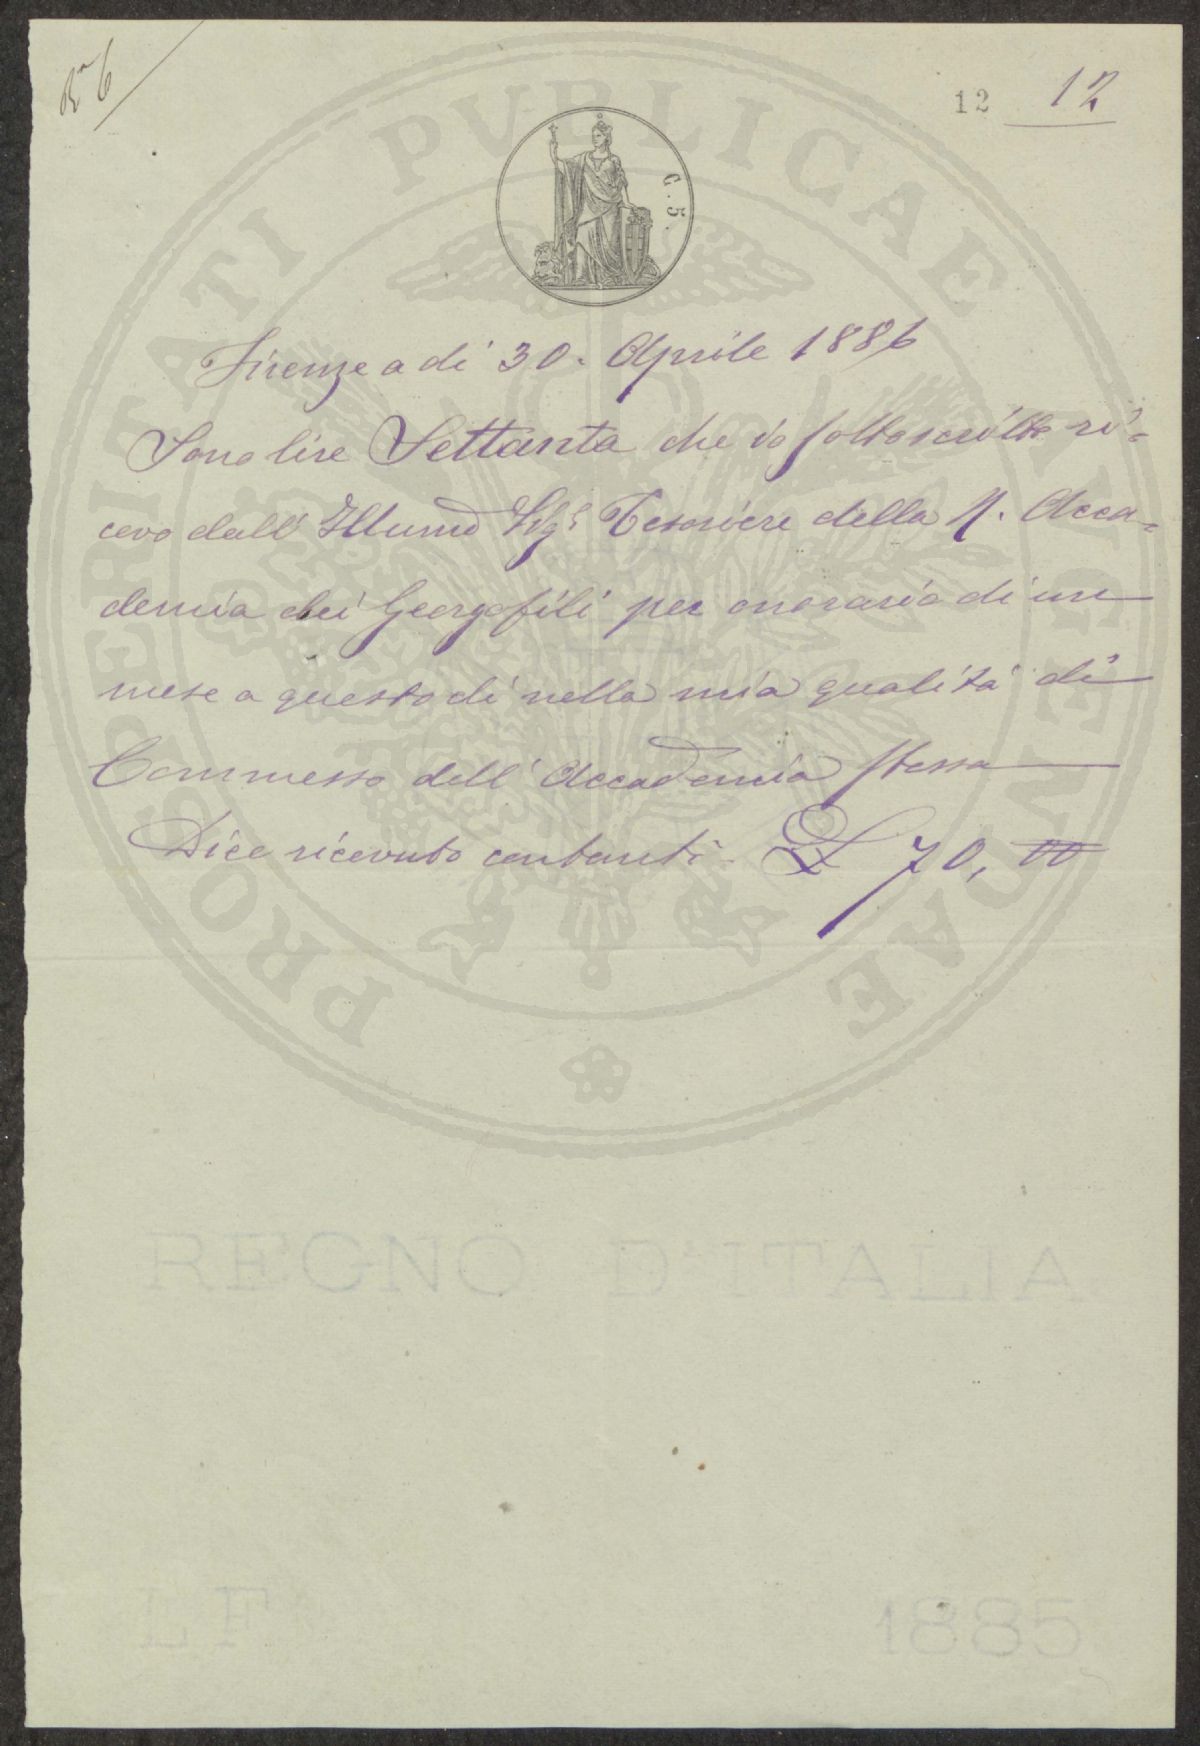 12 12
G. 5.
PROSPERITATI PVBLICAE AVGENDAE
Firenze a dì 30. Aprile 1886
Sono lire Settanta che io sottoscritto ri=
cevo dall' Illumo Sigr Tesoriere della R. Acca=
demia dei Georgofili per onorario di un
mese a questo dì nella mia qualità di
Commesso dell' Accademia stessa
Dico ricevuto contanti. £ 70, 00
REGNO D'ITALIA
LF 1885